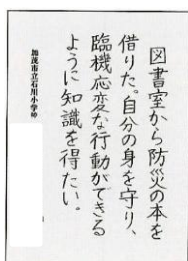 図書室から防災の本を
借りた。自分の身を守り、
臨機応変な行動ができる
ように知識を得たい。
加茂市立石川小学校